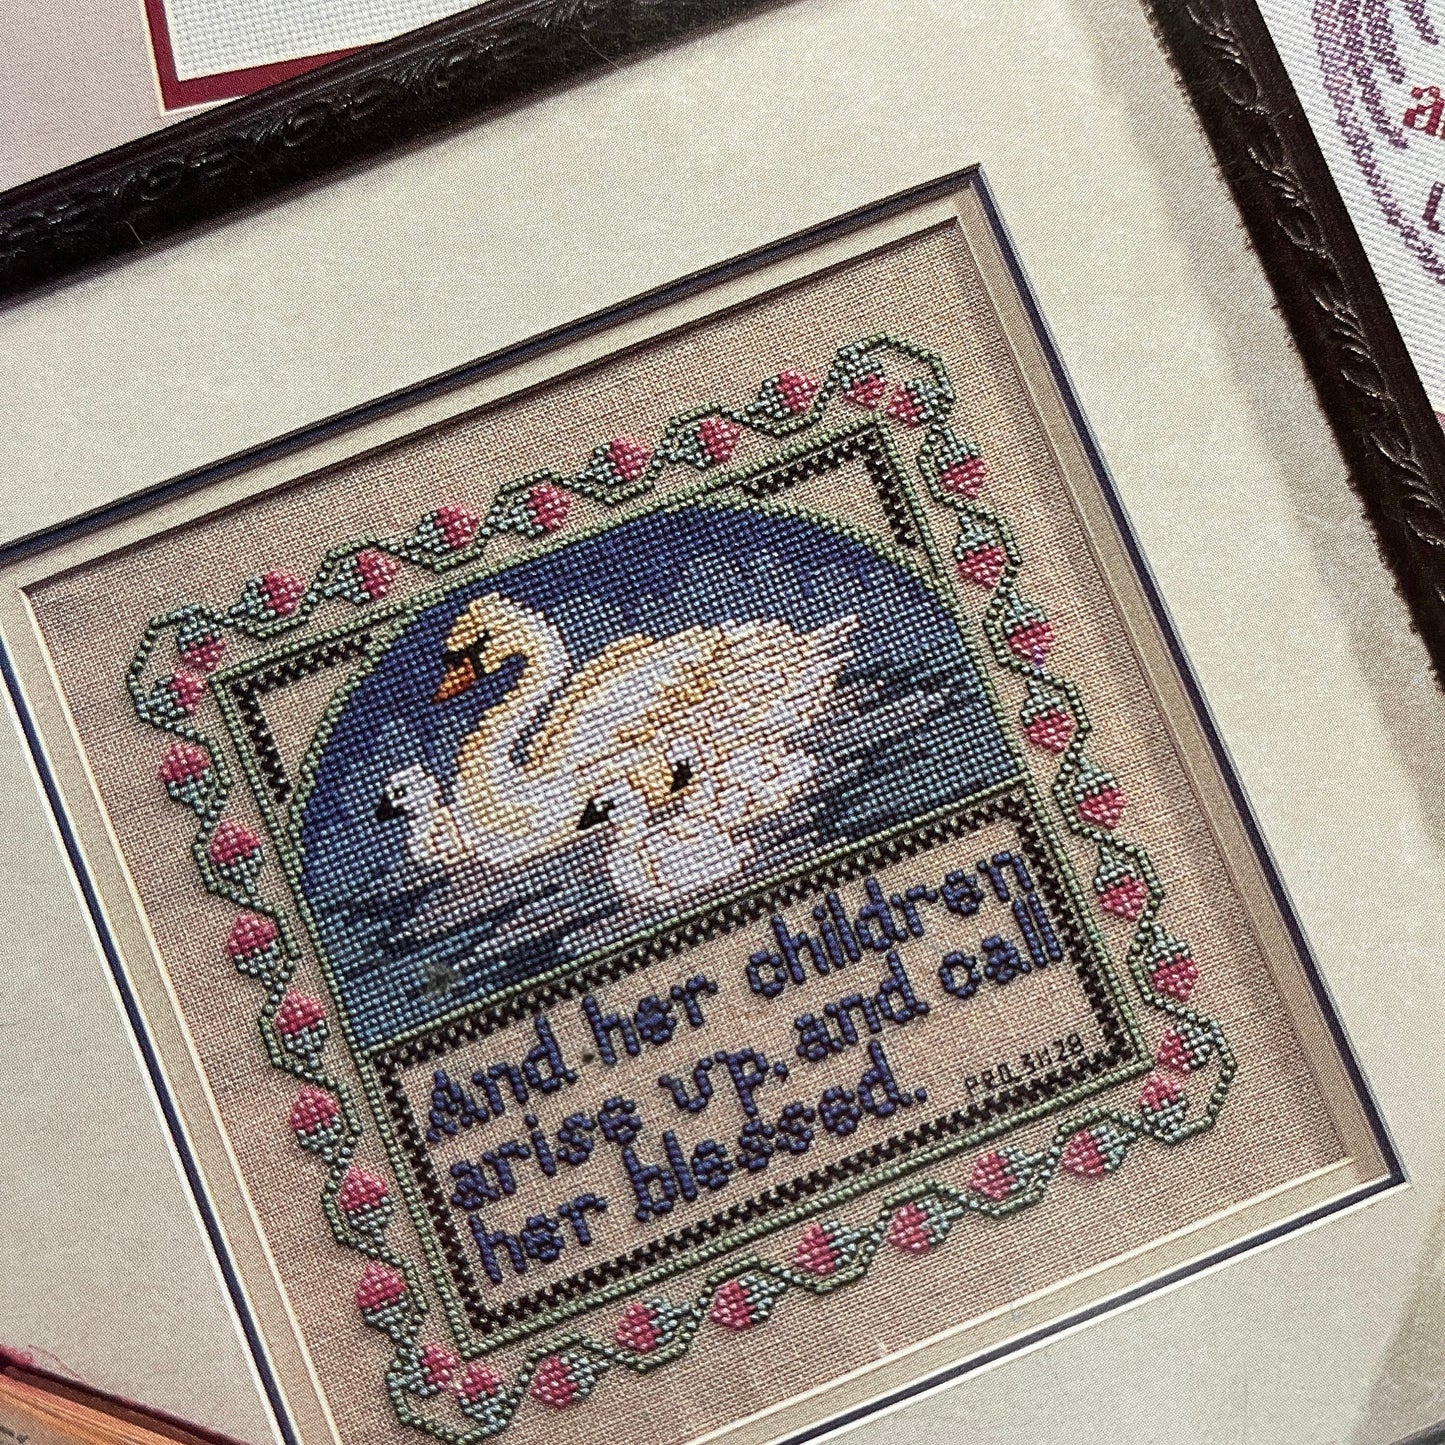 And her children
arise up, and call
her blessed.
PRO. 31:28